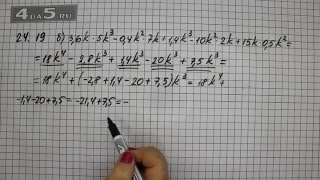 4a5.ru
24.19 б) 3,6k·5k³-0,4k²·7k+1,4k³-10k²·2k+15k·0,5k²=
=18k⁴-2,8k³+1,4k³-20k³+7,5k³=
=18k⁴+(-2,8+1,4-20+7,5)k³=18k⁴+
-1,4-20+7,5=-21,4+7,5=-